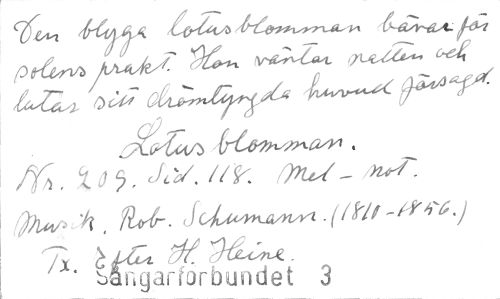 Den blyga lotusblomman bävar för
solens prakt. Hon väntar natten och
lutar sitt drömtyngda huvud försagd.
Lotusblomman.
Nr. 209. Sid. 118. Mel-not.
Musik. Rob. Schumann. (1810-1856.)
Tx. Efter H. Heine.
Sångarförbundet 3